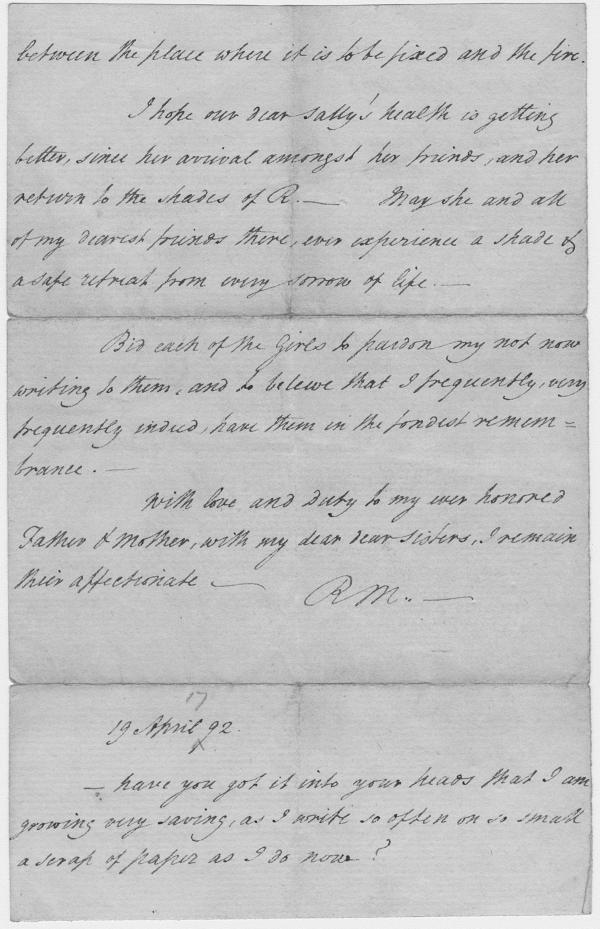 between the place where it is to be fixed and the fire.
I hope our dear Sally's health is getting
better, since her arrival amongst her friends, and her
return to the shades of R. — May she and all
of my dearest friends there, ever experience a shade &
a safe retreat from every sorrow of life. —
Bid each of the Girls to pardon my not now
writing to them, and to beleive that I frequently, very
frequently indeed, have them in the fondest remem=
brance. —
With love and Duty to my ever honored
Father & Mother, with my dear dear sisters, I remain
their affectionate — R M.. —
17
19 April 92.
— have you got it into your heads that I am
growing very saving, as I write so often on so small
a scrap of paper as I do now?